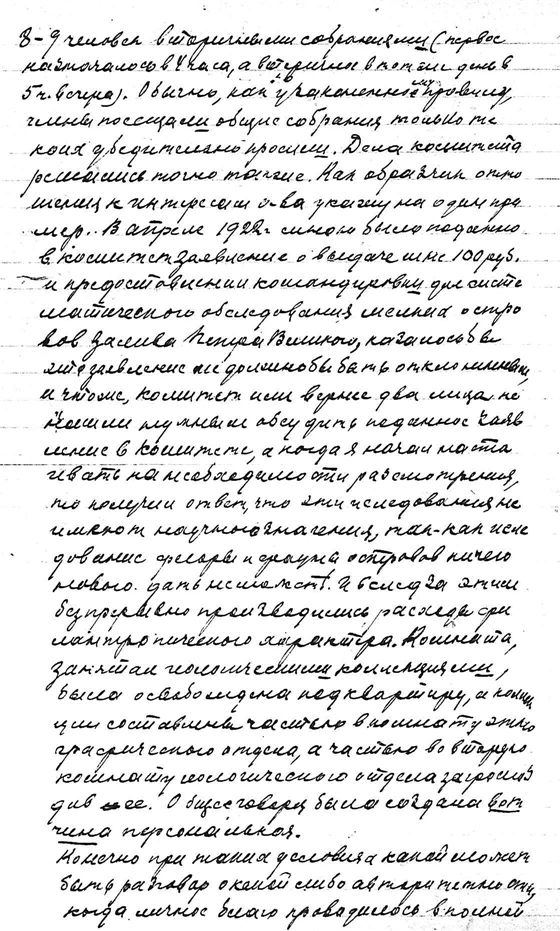 8-9 человек вторичными собраниями (первое
назначалось в 4 часа, а вторичное в тот же день в
5 ч. вечера). Обычно, как узаконенное правило,
члены посещали общие собрания только те
коих убедительно просили. Дела комитета
решались точно также. Как образчик отно
шения к интересам о-ва укажу на один при
мер. В апреле 1922 г мною было поданно
в комитет заявление о выдаче мне 100 руб.
и предоставлении командировки для систе
матического обследования мелких остро
вов залива Петра Великого, казалось бы
это заявление не должно бы быть отклоненным,
и что же, комитет или вернее два лица не
нашли нужным обсудить поданное заяв
ление в комитете, а когда я начал наста
ивать на необходимости рассмотрения,
то получил ответ, что эти исследования не
имеют научного значения, так-как иссле
дование флоры и фауны островов ничего
нового дать не может. И вслед за этим
безпрерывно производились расходы фи
лантропического характера. Комната,
занятая геологическими коллекциями,
была освобождена под квартиру, а коллек
ции составлены частью в комнату этно
графического отдела, а частью во вторую
комнату геологического отдела загромоз
див ее. О общес говоря была создана вот
чина персональная.
Конечно при таких условиях какой может
быть разговор о какой либо авторитетности,
когда личное благо проводилось в полной